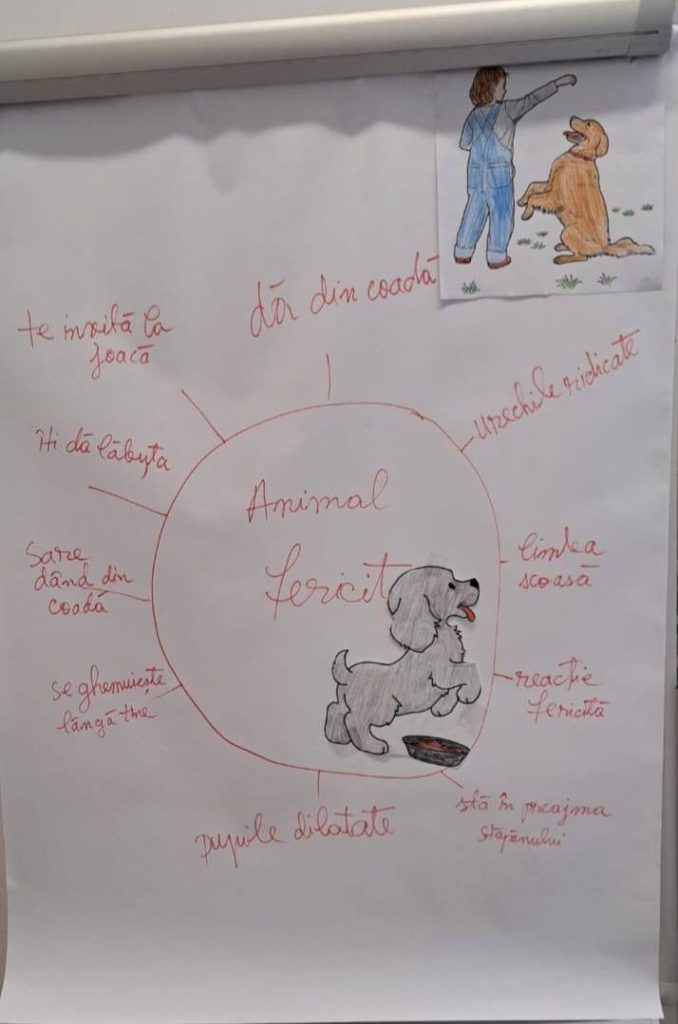 Animal
fericit
dă din coadă
urechile ridicate
limba
scoasă
reacție
fericită
stă în preajma
stăpânului
pupile dilatate
se ghemuiește
lângă tine
Sare
dând din
coadă
Îți dă lăbuța
te invită la
joacă